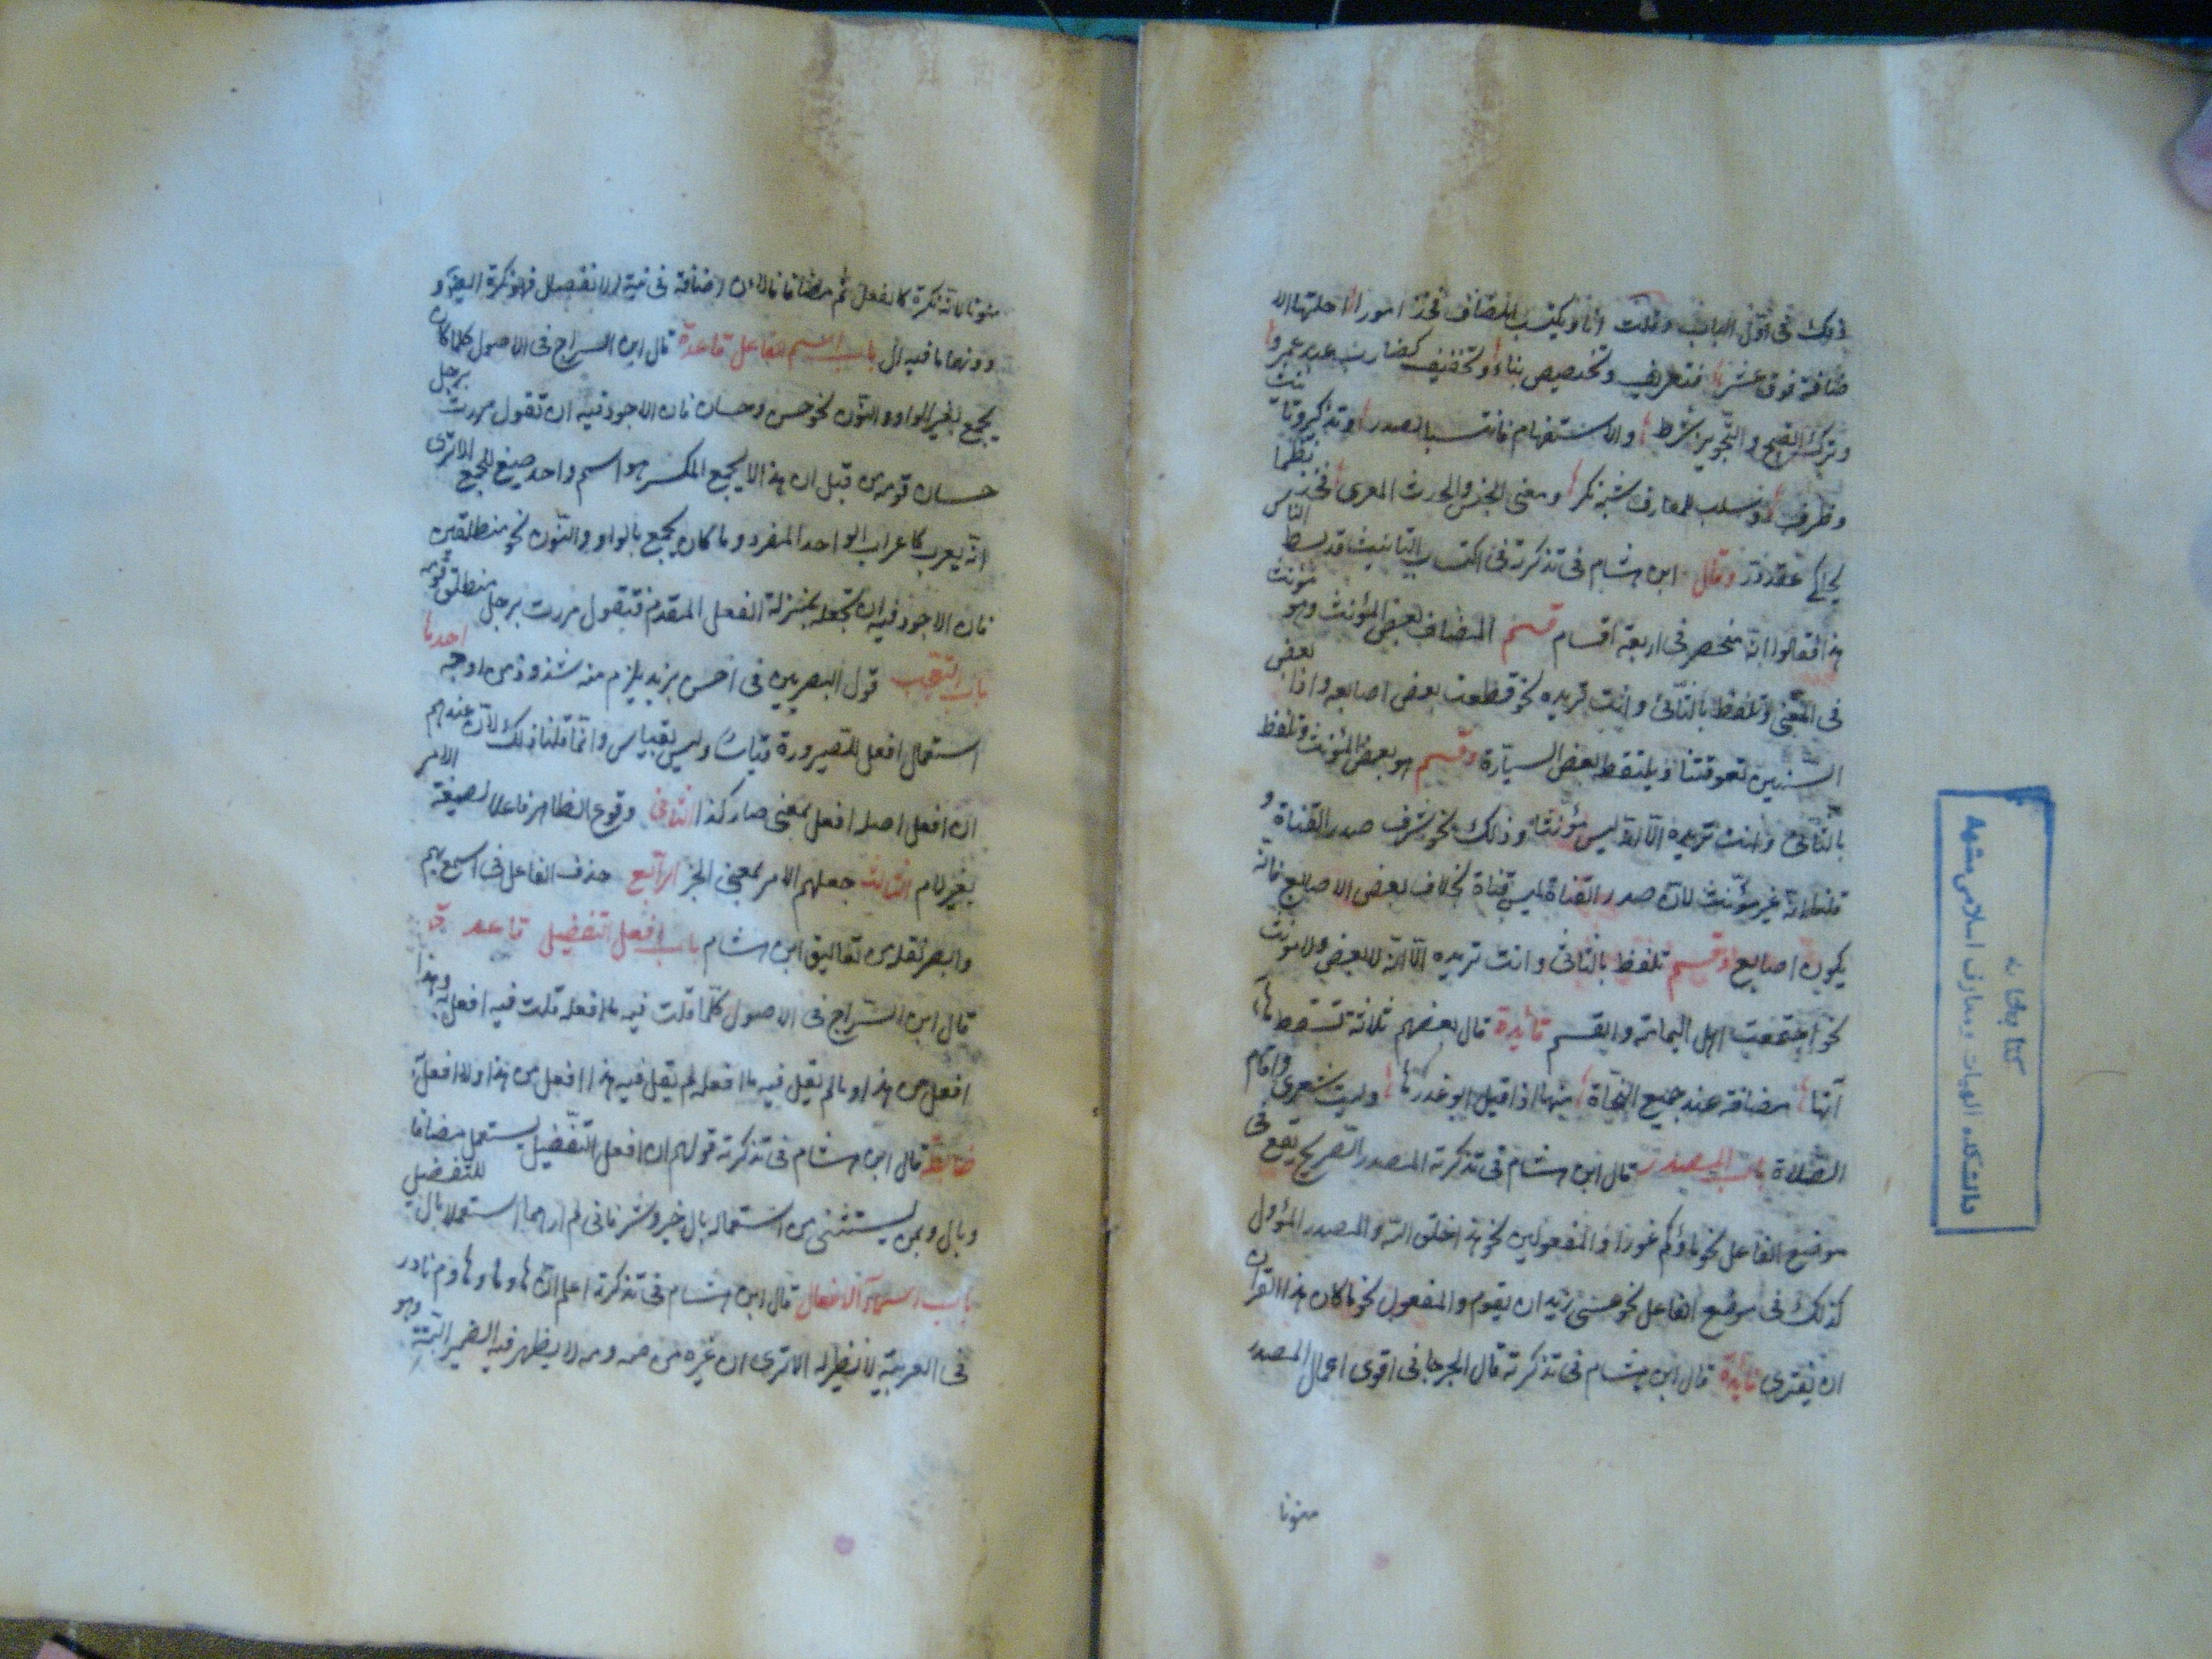 ذلك في اول الباب وقلت ويكتسب المضاف فخذ امورا احلتها الا
ضافة فوق عشر فتعريف وتخصيص بناء وتخفيف كضارب عبد عمرو
وترك القبح والتجويز شرط والاستفهام فانتسبا لصدر وتذكير وتأنيث
وظرف وسلب للمعارف شبه نكر ومعنى الجنس والحدث المعرى فخذ نظما
يحاكي عقد در وقال ابن هشام في تذكرته في اكتساب التأنيث قد بسط الناس
هذا فقالوا انه منحصر في اربعة اقسام قسم المضاف بعض المؤنث وهو مؤنث
في المعنى وتلفظ بالثاني وانت تريده نحو قطعت بعض اصابعه واذا بعض
السنين تعرقتنا ويلتقطه بعض السيارة وقسم هو بعض المؤنث وتلفظ
بالثاني وانت تريده الا انه ليس مؤنثا وذلك نحو شرقت صدر القناة و
قلنا انه غير مؤنث لان صدر القناة ليس قناة بخلاف بعض الاصابع فانه
يكون اصابع وقسم تلفظ بالثاني وانت تريده الا انه لا بعض ولا مؤنث
نحو اجتمعت اهل اليمامة والقسم فائدة قال بعضهم ثلاثة تسقط هاء
آتها مضافة عند جميع النحاة منها اذا قيل ابو عذرها وليت شعري واقام
الصلاة باب المصدر قال ابن هشام في تذكرته المصدر الصريح يقع في
موضع الفاعل نحو ماؤكم غورا والمفعول نحو هذا خلق الله والمصدر المؤول
كذلك في موضع الفاعل نحو عسى زيد ان يقوم والمفعول نحو ما كان هذا القرآن
ان يفترى فائدة قال ابن هشام في تذكرته قال الجرجاني اقوى اعمال المصدر
منونا
كتابخانه
دانشكده الهيات ومعارف اسلامى مشهد
منونا لانه نكرة كالفعل ثم مضافا لان اضافته في نية الانفصال فهو نكرة ايضا و
دونهما ما فيه ال باب اسم الفاعل قاعدة قال ابن السراج في الاصول كلما كان
يجمع بغير الواو والنون نحو حسن وحسان فان الاجود فيه ان تقول مررت برجل
حسان قومه من قبل ان هذا الجمع المكسر هو اسم واحد صيغ للجمع الا ترى
انه يعرب كاعراب الواحد المفرد وما كان يجمع بالواو والنون نحو منطلقين
فان الاجود فيه ان تجعله بمنزلة الفعل المقدم فتقول مررت برجل منطلق قومه
باب التعجب قول البصريين في احسن بزيد يلزم منه شذوذ من اوجه احدها
استعمال افعل للصيرورة قياسا وليس بقياس وانما قلنا ذلك لان عندهم
ان افعل اصله افعل بمعنى صار كذا الثاني وقوع الظاهر فاعلا لصيغة الامر
بغير لام الثالث جعلهم الامر بمعنى الخبر الرابع حذف الفاعل في اسمع بهم
وابصر نقله من تعاليق ابن هشام باب افعل التفضيل قاعدة
قال ابن السراج في الاصول كلما قلت فيه ما افعله قلت فيه افعل به وهذا
افعل من هذا وما لم يقل فيه ما افعله لم يقل فيه هذا افعل من هذا ولا افعل به
ضابط قال ابن هشام في تذكرته قولهم ان افعل التفضيل يستعمل مضافا
وبال وبمن يستثنى من استعماله بال خير وشر فاني لم ارهما استعملا بال للتفضيل
باب اسماء الافعال قال ابن هشام في تذكرته اعلم ان ها وهاوم نادر
في العربية لا نظير له الا ترى ان غيره من صه ومه لا يظهر فيه الضمير البتة وهو